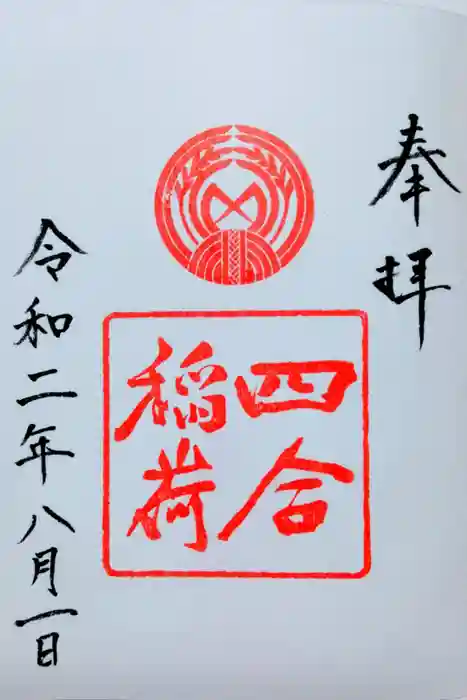 奉拝
四合
稲荷
令和二年八月一日